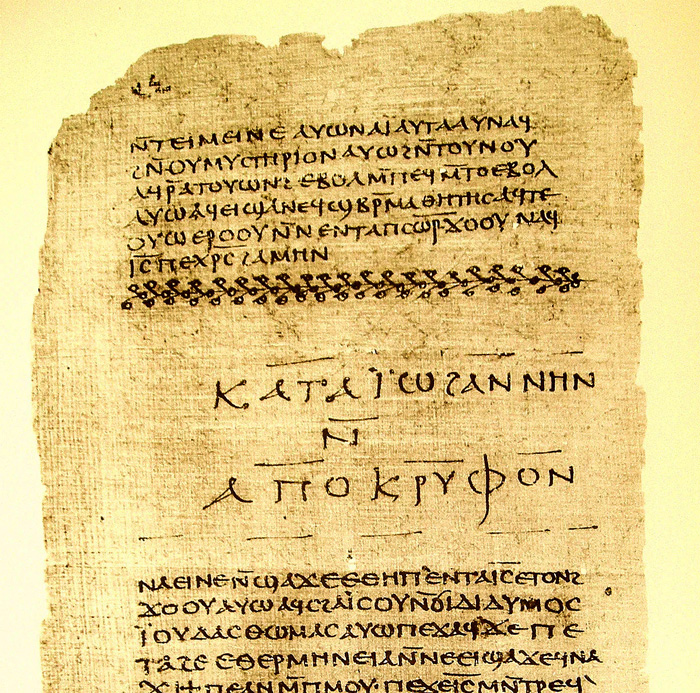 ⲛ̄ⲧⲉⲓⲙⲉⲓⲛⲉ ⲁⲩⲱ ⲛⲁⲓ ⲁⲩⲧⲁⲁⲩ ⲛⲁϥ
ϩⲛ̄ ⲟⲩⲙⲩⲥⲧⲏⲣⲓⲟⲛ ⲁⲩⲱ ϩⲛ̄ ⲧⲟⲩⲛⲟⲩ
ⲁϥⲣⲁⲧⲟⲩⲱⲛϩ ⲉⲃⲟⲗ ⲙ̄ⲡⲉϥⲙ̄ⲧⲟ ⲉⲃⲟⲗ
ⲁⲩⲱ ⲁϥⲉⲓ ϣⲁ ⲛⲉϥϣⲃⲣⲙⲁⲑⲏⲧⲏⲥ ⲁϥⲧⲉ
ⲟⲩⲱ ⲉⲣⲟⲟⲩ ⲛ̄ⲛⲉⲛⲧⲁⲡⲥⲱ̄ⲣ̄ ϫⲟⲟⲩ ⲛⲁϥ
ⲓ̄ⲥ̄ ⲡⲉⲭ̄ⲣ̄ⲥ̄ ϩⲁⲙⲏⲛ
ⲕⲁⲧⲁ ⲓ̈ⲱϩⲁⲛⲛⲏⲛ
ⲛ̄
ⲁⲡⲟⲕⲣⲩⲫⲟⲛ
ⲛⲁⲉⲓ ⲛⲉ ⲛ̄ϣⲁϫⲉ ⲉⲑⲏⲡ ⲉⲛⲧⲁⲓ̄ⲥ̄ ⲉⲧⲟⲛϩ
ϫⲟⲟⲩ ⲁⲩⲱ ⲁϥⲥϩⲁⲓ̈ⲥⲟⲩ ⲛ̄ϭⲓ ⲇⲓⲇⲩⲙⲟⲥ
ⲓ̈ⲟⲩⲇⲁⲥ ⲑⲱⲙⲁⲥ ⲁⲩⲱ ⲡⲉϫⲁϥ ϫⲉ ⲡⲉ
ⲧⲁϩⲉ ⲉⲑⲉⲣⲙⲏⲛⲉⲓⲁ ⲛ̄ⲛⲉⲉⲓϣⲁϫⲉ ϥⲛⲁ
ϫⲓ ϯⲡⲉ ⲁⲛ ⲙ̄ⲡⲙⲟⲩ ⲡⲉϫⲉ ⲓ̄ⲥ̄ ⲙⲛ̄ⲧⲣⲉϥ